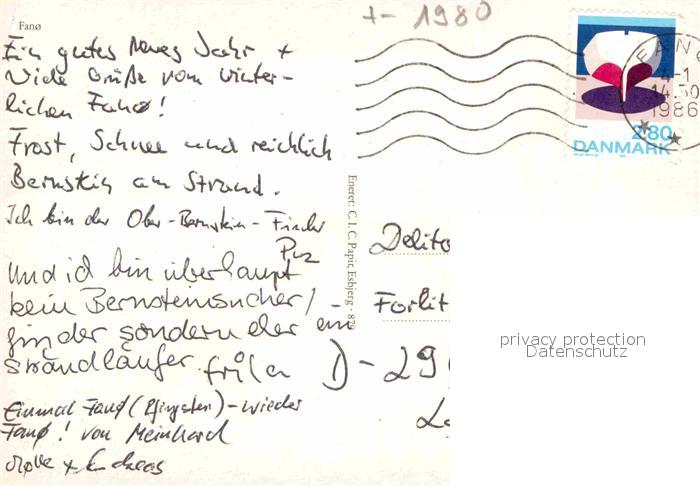 Fanø
+- 1980
Ein gutes Neues Jahr +
viele Grüße vom winter-
lichen Fanø!
Frost, Schnee und reichlich
Bernstein am Strand.
Ich bin der Ober-Bernstein-Finder
und ich bin überhaupt
kein Bernsteinsucher/
finder sondern eher ein
strandläufer.
Einmal Fanø (Pfingsten) - wieder
Fanø! von Meinhard
+ Andreas
Eneret: C.I.C. Papir, Esbjerg - 879
FANØ
4-1
14.30
1986
2.80
DANMARK
Delito
Forlit
D-29
privacy protection
Datenschutz